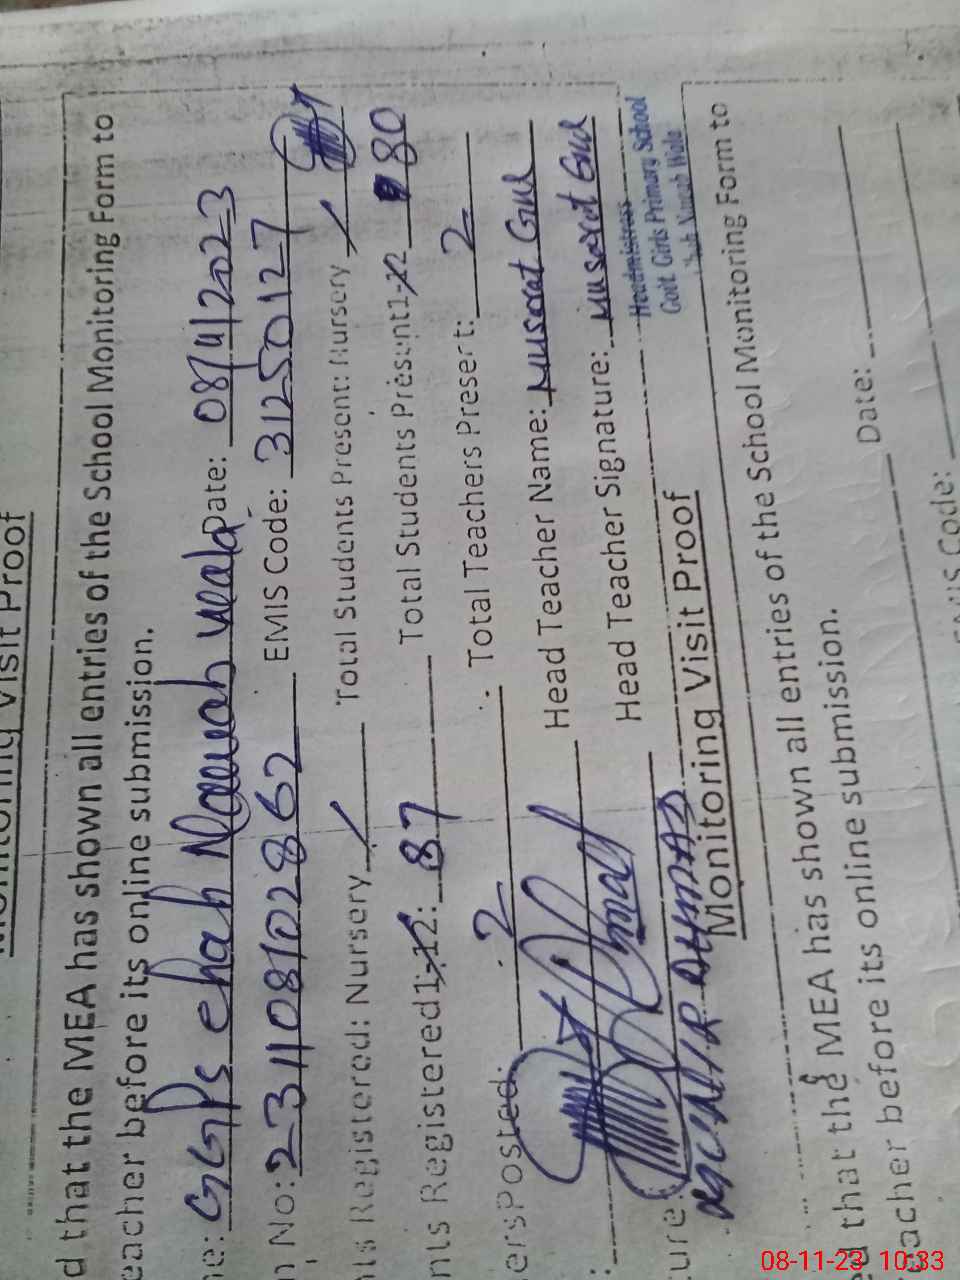 Monitoring Visit Proof
d that the MEA has shown all entries of the School Monitoring Form to
eacher before its online submission.
ne: GGPS chah Nawah wala Date: 08/11/2023
n No: 23110810 2862 EMIS Code: 31250127
nts Registered: Nursery / Total Students Present: Nursery /
nts Registered 1-12: 87 Total Students Present 1-12 80
ers Posted: 2 Total Teachers Present: 2
Head Teacher Name: Musarat Gul
ure: Head Teacher Signature: Musarat Gul
Headmistress
Govt. Girls Primary School
Chah Nawah Wala
Monitoring Visit Proof
ed that the MEA has shown all entries of the School Monitoring Form to
eacher before its online submission.
Date:
EMIS Code:
08-11-23 10:33